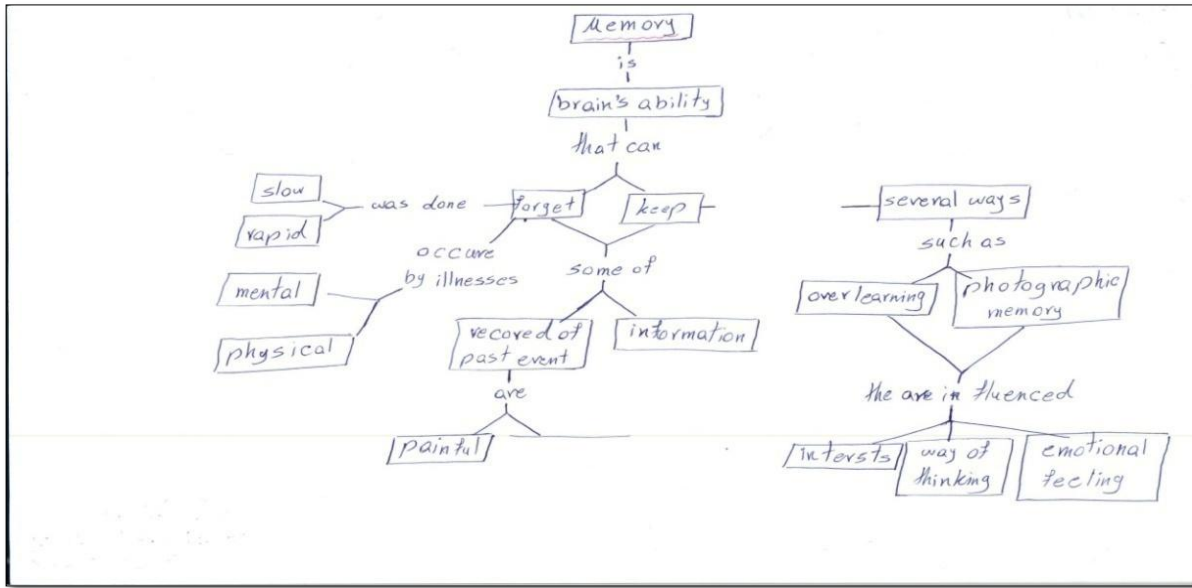 Memory
is
brain's ability
that can
slow
rapid
was done
forget
keep
several ways
occure
by illnesses
mental
physical
some of
recored of
past event
information
are
painful
such as
overlearning
photographic
memory
the are in fluenced
intersts
way of
thinking
emotional
feeling